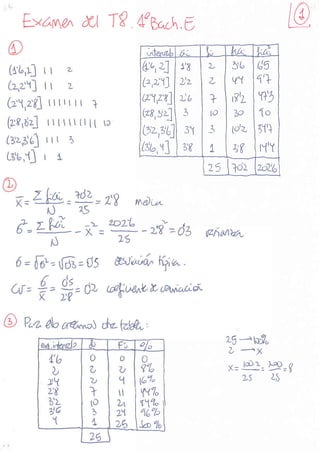 Examen del T8. 1º Bach. E
1
①
(1'6,2] II 2
(2,2'4] II 2
(2'4,2'8] IIIIIII 7
(2'8,3'2] IIIIIIIIII 10
(3'2,3'6] III 3
(3'6,4] I 1
intervalo ci fi fici fici²
(1'6,2] 1'8 2 3'6 6'5
(2,2'4] 2'2 2 4'4 9'7
(2'4,2'8] 2'6 7 18'2 47'3
(2'8,3'2] 3 10 30 90
(3'2,3'6] 3'4 3 10'2 34'7
(3'6,4] 3'8 1 3'8 14'4
25 70'2 202'6
②
x̄ = Σfici/N = 70'2/25 = 2'8 media
σ² = Σfici²/N - x̄² = 202'6/25 - 2'8² = 0'3 varianza
σ = √σ² = √0'3 = 0'5 desviación típica.
CV = σ/x̄ = 0'5/2'8 = 0'2 coeficiente de variación
③ Para ello creamos otra tabla:
ext. intervalo fi Fi %
1'6 0 0 0
2 2 2 8%
2'4 2 4 16%
2'8 7 11 44%
3'2 10 21 84%
3'6 3 24 96%
4 1 25 100%
25
25 → 100%
2 → x
x = 100·2/25 = 200/25 = 8